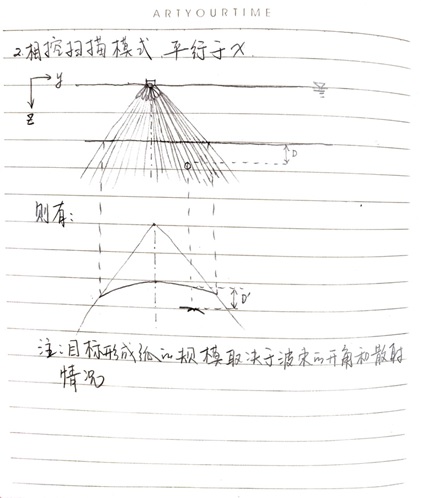 ARTYOURTIME
2.相控扫描模式 平行于x
y
z
D
则有:
D'
注:目标形成弧的规模取决于波束的开角和散射
情况